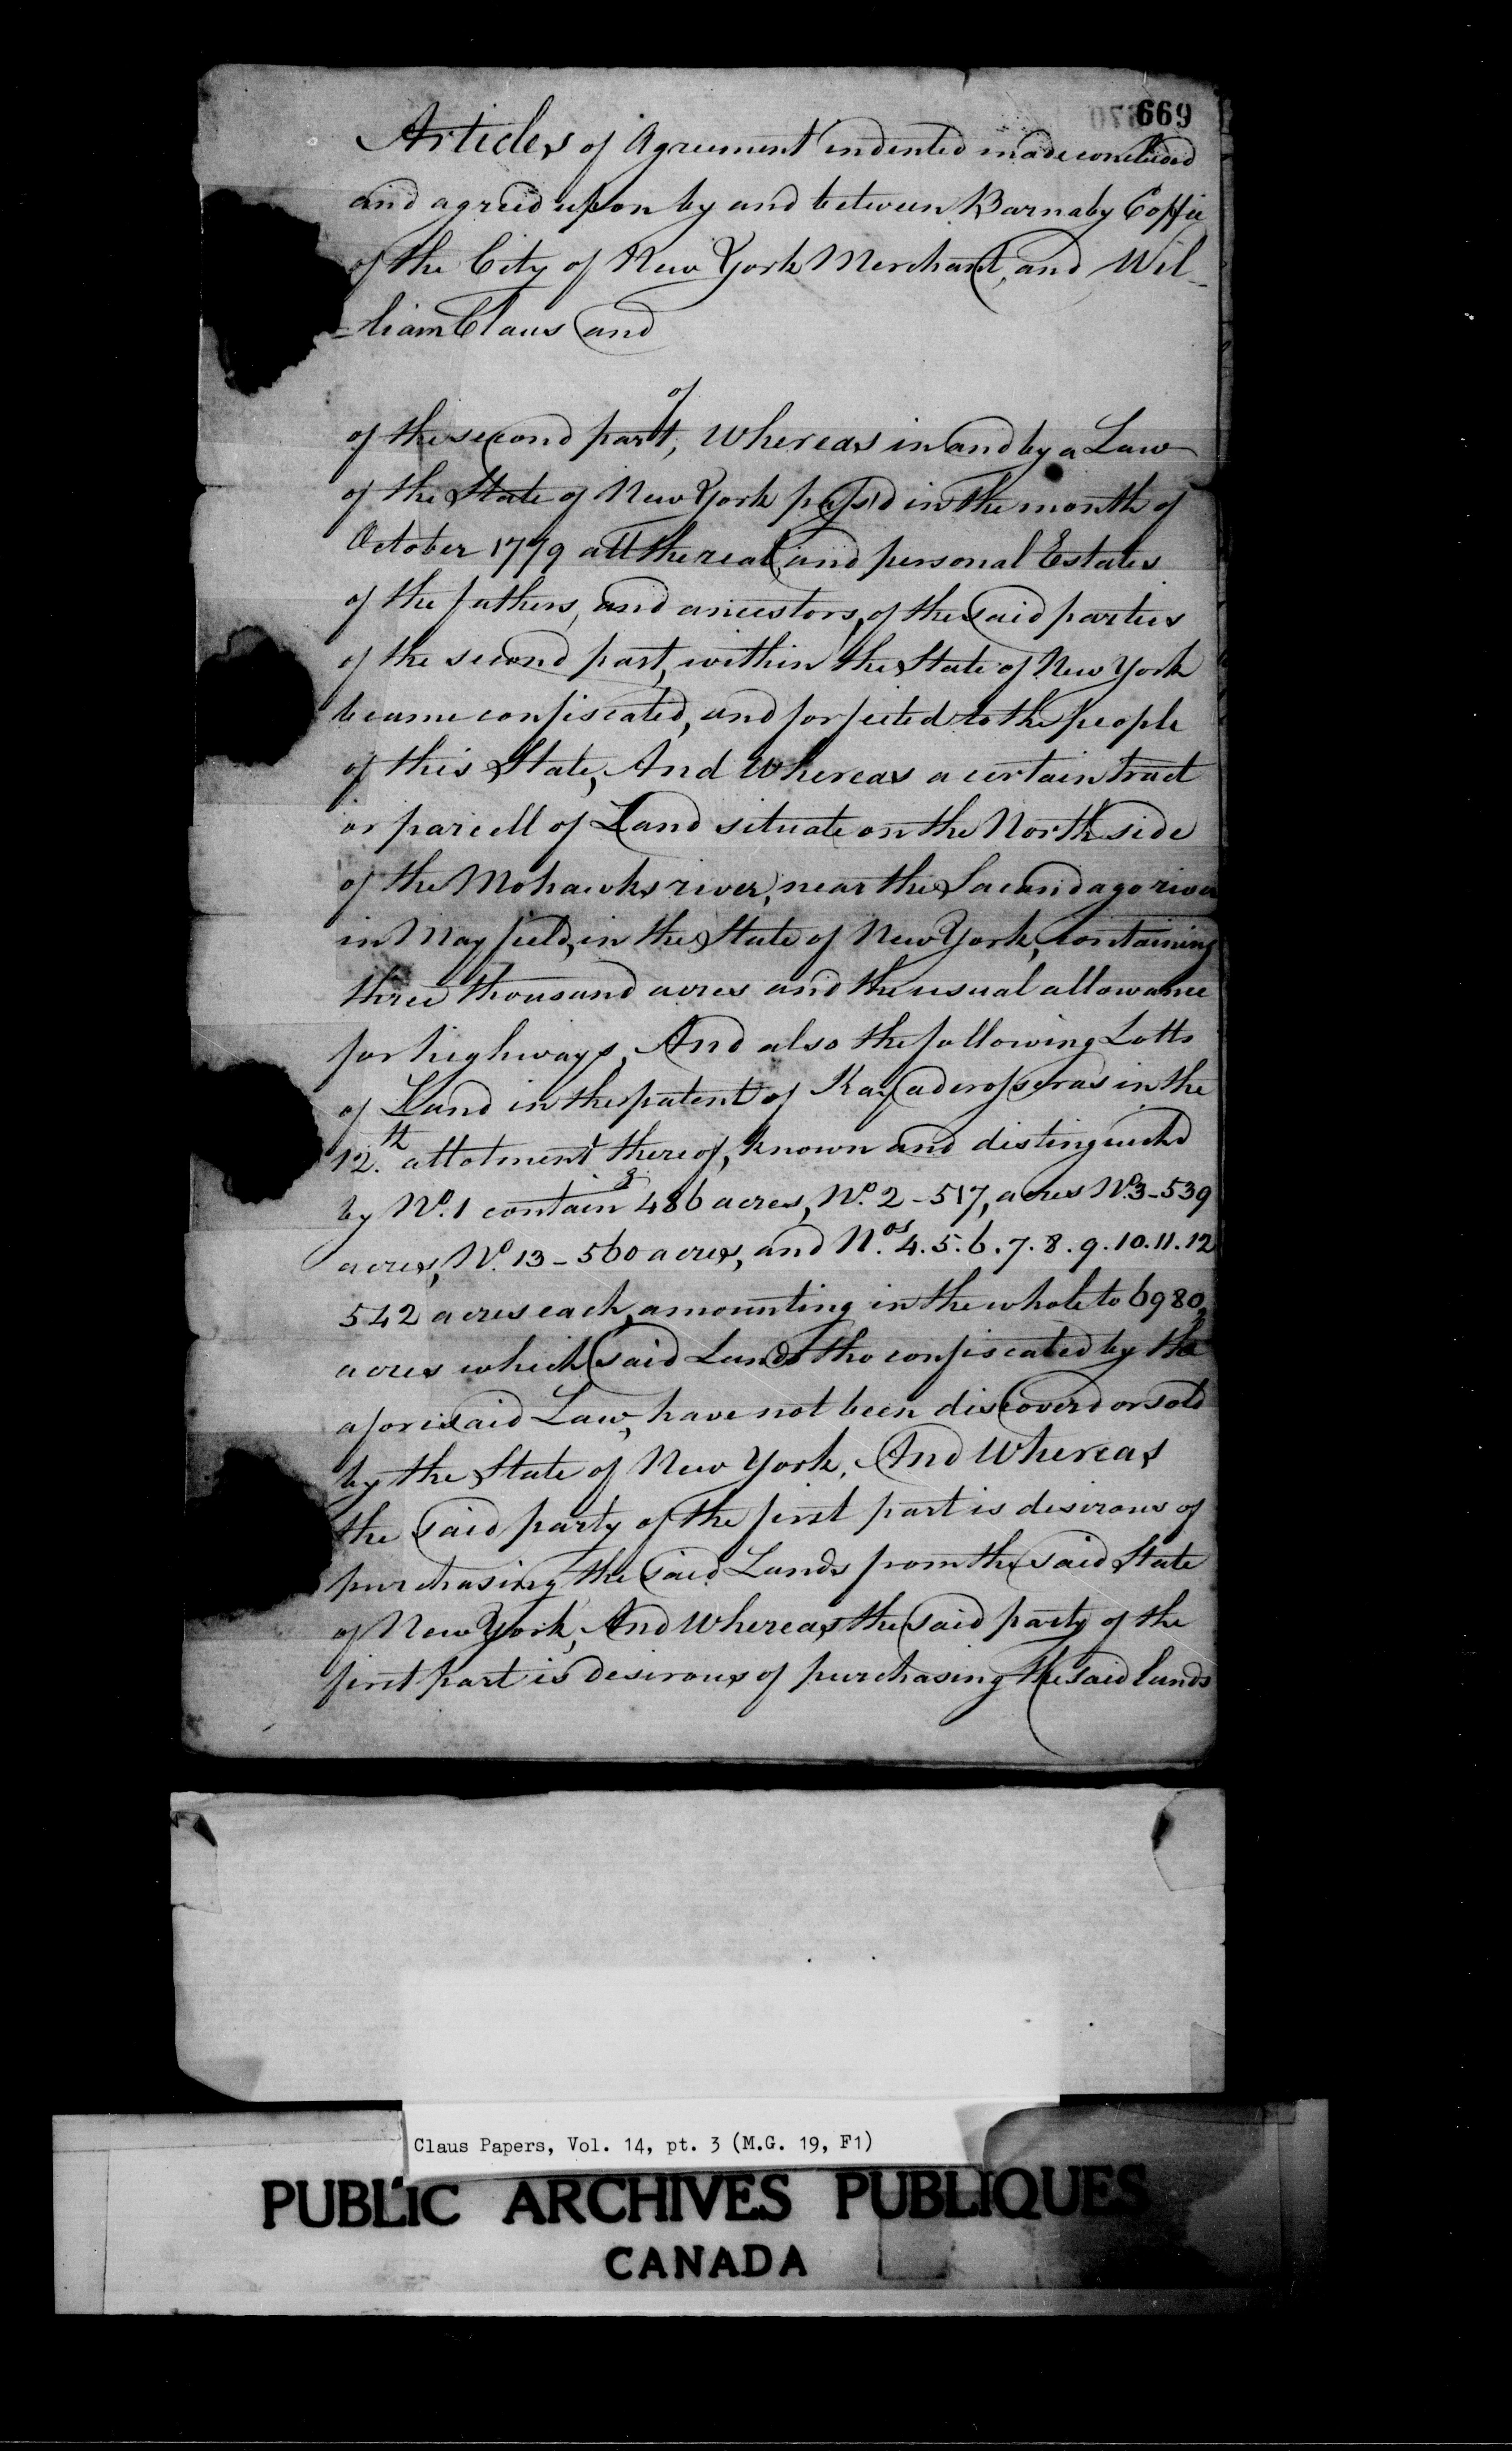 669
Articles of Agreement indented made concluded
and agreed upon by and between Barnaby Coffee
of the City of New York Merchant, and Wil-
=liam Claus and
of
of the second part, Whereas in and by a Law
of the State of New York pass'd in the month of
October 1779 all the real and personal Estates
of the fathers, and ancestors, of the said parties
of the second part, within the State of New York
became confiscated, and forfeited to the people
of this State, And Whereas a certain tract
or parcell of Land situate on the North side
of the Mohawks river, near the Sacandago river
in Mayfield, in the State of New York, containing
three thousand acres and the usual allowance
for highways, And also the following Lotts
of Land in the patent of Kayaderosseras in the
12.th allotment thereof, known and distinguishd
by No. 1 containg 486 acres, No. 2 - 517, acres No. 3 - 539
acres, No. 13 - 560 acres, and N.os 4. 5. 6. 7. 8. 9. 10. 11. 12
542 acres each, amounting in the whole to 6980
acres which said Lands tho confiscated by the
aforesaid Law, have not been discoverd or sold
by the State of New York, And Whereas
the said party of the first part is desirous of
purchasing the said Lands from the said State
of New York, And Whereas the said party of the
first part is desirous of purchasing the said lands
Claus Papers, Vol. 14, pt. 3 (M.G. 19, F1)
PUBLIC ARCHIVES PUBLIQUES
CANADA